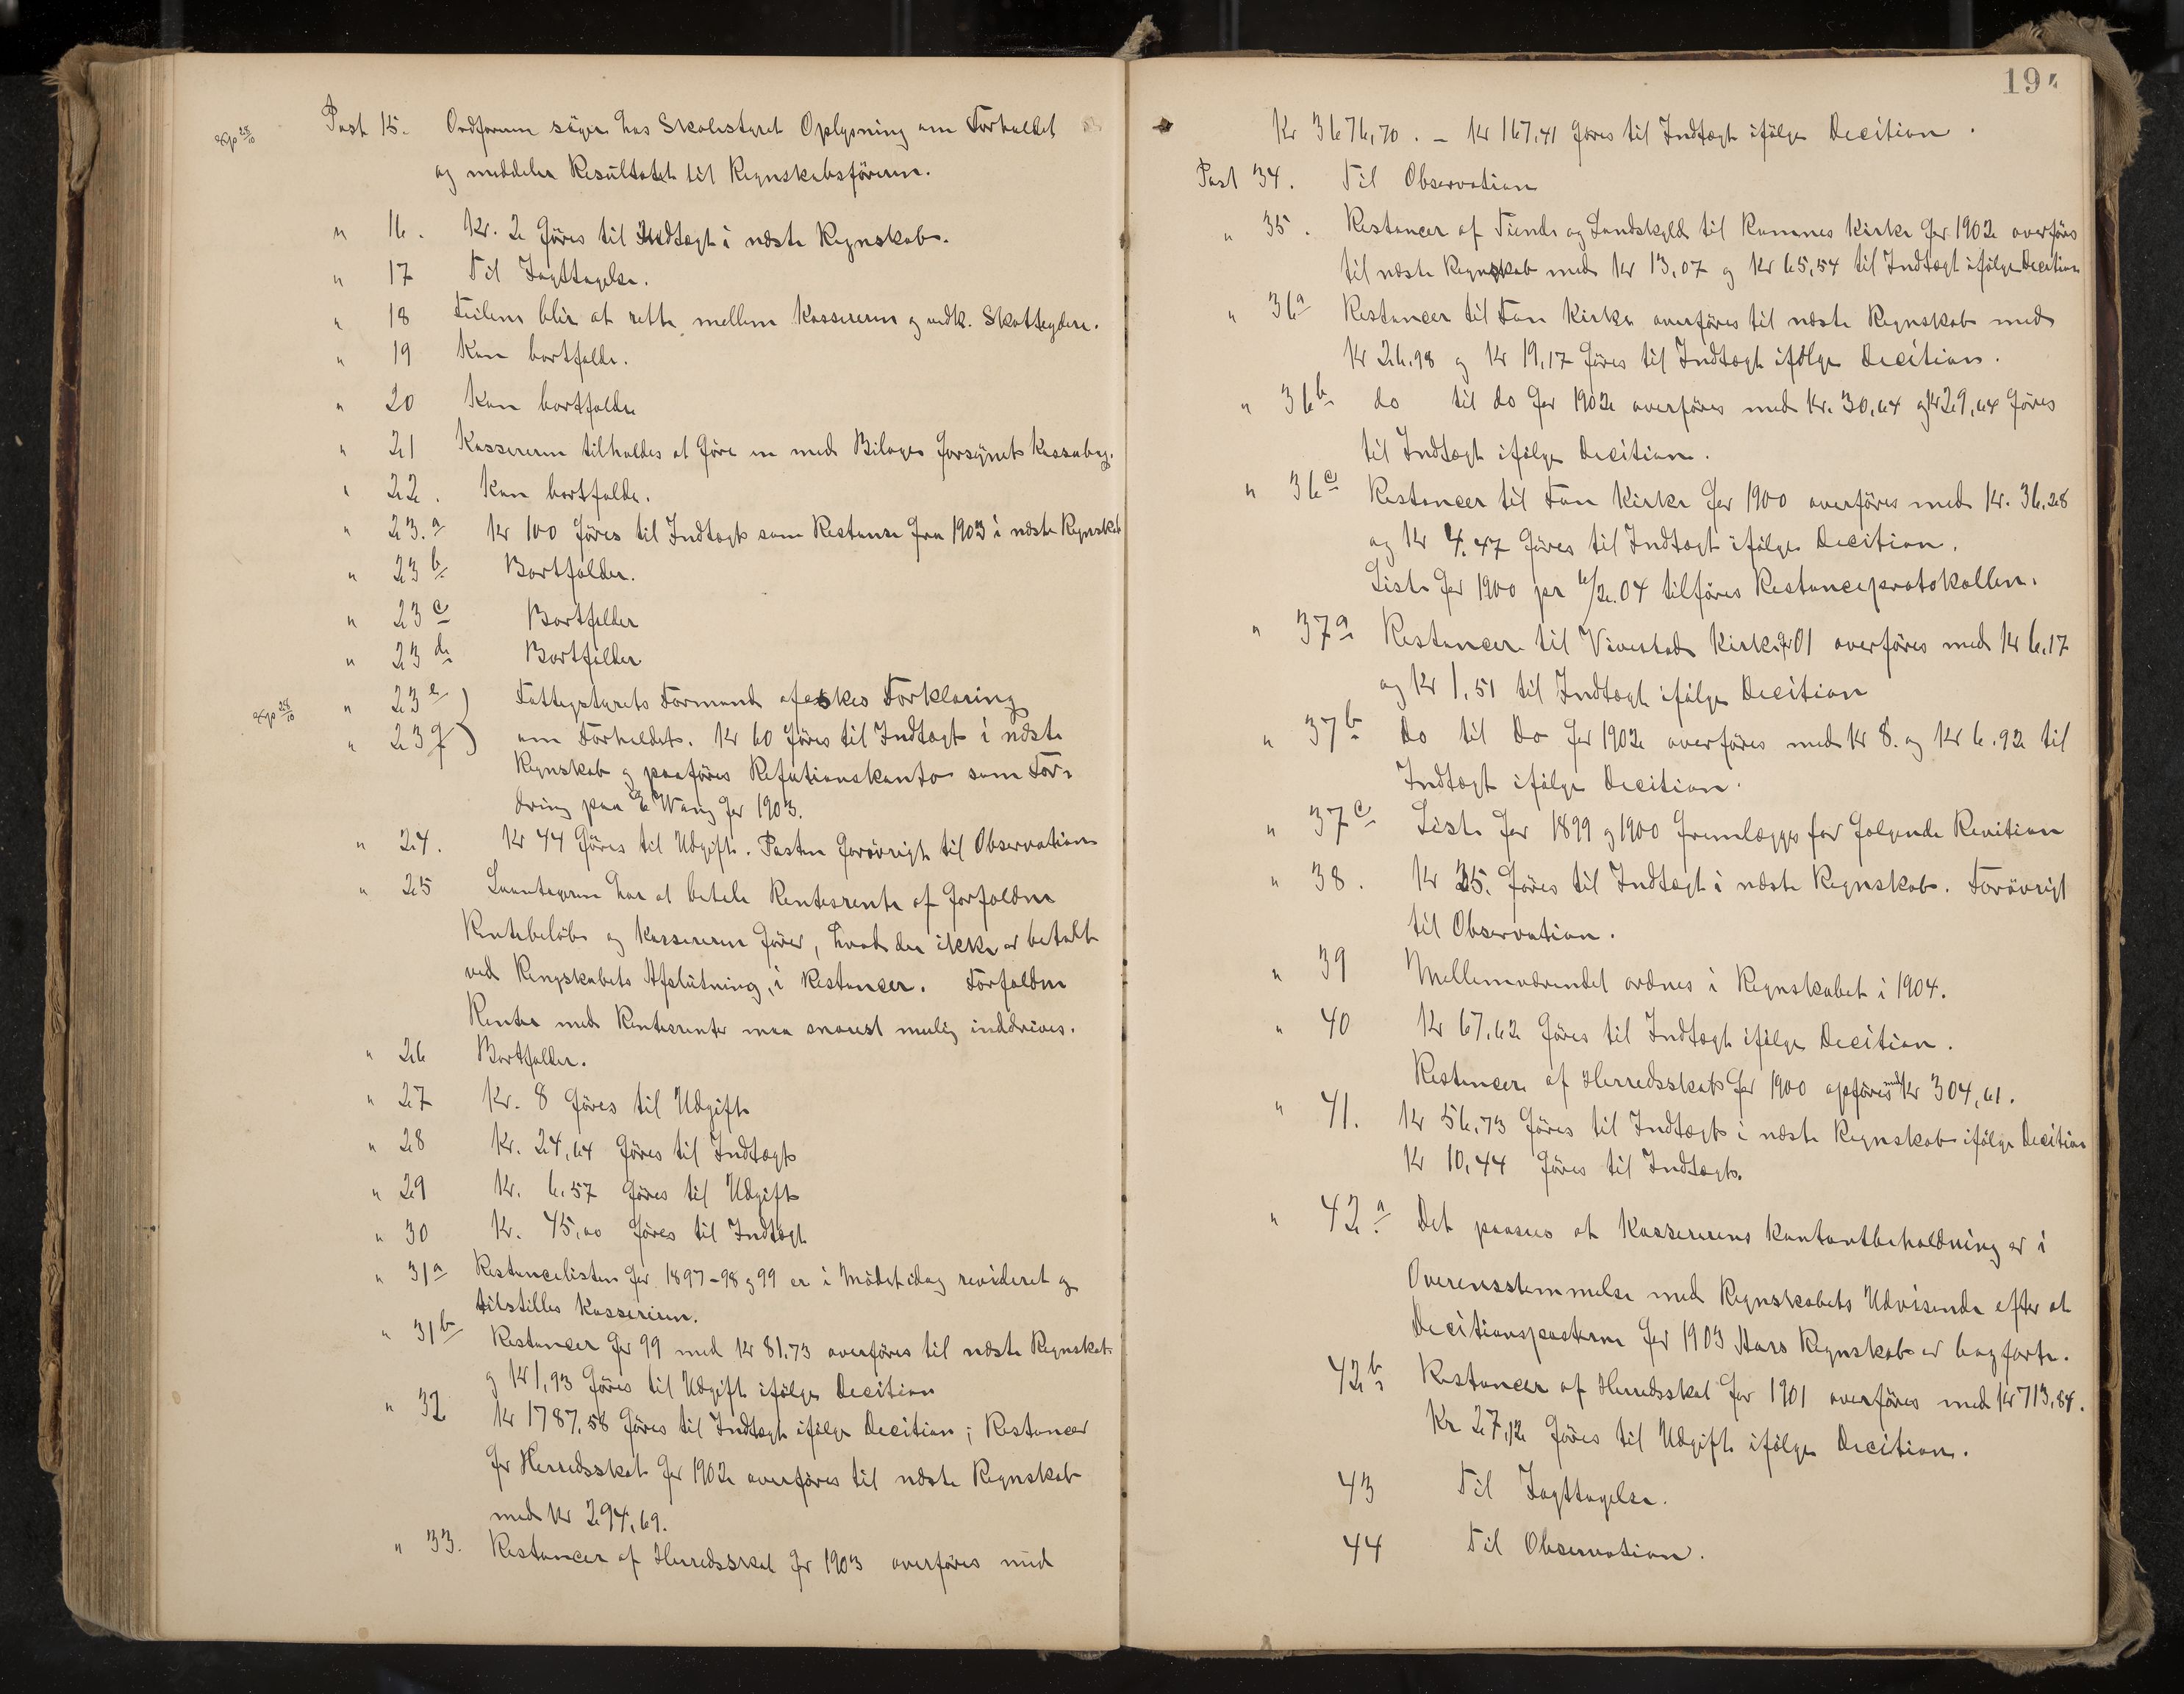 Exp 28/10
Post 15. Ordføreren søger hos Skolestyret Oplysning om Forholdet
og meddeler Resultatet til Regnskabsføreren.
" 16. Kr. 2 føres til Indtægt i næste Regnskab.
" 17 Til Iagttagelse.
" 18 Feilene blir at rette mellem Kassereren og vedk. Skatteydere.
" 19 Kan bortfalde.
" 20 Kan bortfalde
" 21 Kassereren tilholdes at føre en med Bilager forsynet Kassabog.
" 22. Kan bortfalde.
" 23.a Kr 100 føres til Indtægt som Restanse fra 1903 i næste Regnskab
" 23 b Bortfalder.
" 23 c Bortfalder
" 23 d Bortfalder
Exp 28/10
" 23 e) Fattigstyrets Formand afeskes Forklaring
" 23 f) om Forholdet. Kr 60 føres til Indtægt i næste
Regnskab og paaføres Refutionskonto som For-
dring paa E Wang for 1903.
" 24. Kr 44 føres til Udgift. Posten forøvrigt til Observation
" 25 Laantageren har at betale Rentesrente af forfaldne
Rentebeløb og Kassereren fører, hvad der ikke er betalt
ved Rengskabets Afslutning, i Restancer. Forfaldne
Renter med Rentesrenter maa snarest mulig inddrives.
" 26 Bortfalder.
" 27 Kr. 8 føres til Udgift
" 28 Kr. 24,64 føres til Indtægt
" 29 Kr. 6.57 føres til Udgift
" 30 Kr. 45,00 føres til Indtægt
" 31a Restancelisten for 1897-98 og 99 er i Mødet idag revideret og
tilstilles Kassereren.
" 31b Restancer for 99 med Kr 81.73 overføres til næste Regnskab
og Kr 1,93 føres til Udgift ifølge Decition
" 32 Kr 1787,58 føres til Indtægt ifølge Decition; Restancer
for Herredsskat for 1902 overføres til næste Regnskab
med Kr 294,69.
" 33. Restancer af Herredsskat for 1903 overføres med
194
Kr 3676,70. - Kr 167,41 føres til Indtægt ifølge Decition.
Post 34. Til Observation
" 35. Restancer af Tiende og Landskyld til Ramnes Kirke for 1902 overføres
til næste Regnskab med Kr 13,07 og Kr 65,54 til Indtægt ifølge Decition
" 36a Restancer til Fon Kirke overføres til næste Regnskab med
Kr 26.98 og Kr 19,17 føres til Indtægt ifølge Decition.
" 36b do til do for 1902 overføres med Kr. 30,64 og Kr 29,64 føres
til Indtægt ifølge Decition.
" 36c Restancer til Fon Kirke for 1900 overføres med Kr. 36.28
og Kr 4.47 føres til Indtægt ifølge Decition.
Liste for 1900 pr 6/2.04 tilføres Restanceprotokollen.
" 37a Restancer til Vivestad Kirke for 01 overføres med Kr 6.17
og Kr 1,51 til Indtægt ifølge Decition
" 37b Do til Do for 1902 overføres med Kr 8. og Kr 6.92 til
Indtægt ifølge Decition.
" 37c Liste for 1899 og 1900 fremlægges for følgende Revition
" 38. Kr 35. føres til Indtægt i næste Regnskab. Forøvrigt
til Observation.
" 39 Mellemværendet ordnes i Regnskabet i 1904.
" 40 Kr 67,62 føres til Indtægt ifølge Decition.
Restancer af Herredsskat for 1900 opføres med Kr 304,61.
" 41. Kr 56,73 føres til Indtægt i næste Regnskab ifølge Decition
Kr 10,44 føres til Indtægt.
" 42a Det paasees at Kassererens Kontantbeholdning er i
Overensstemmelse med Regnskabets Udvisende efter at
Decitionsposterne for 1903 Aars Regnskab er bogførte.
42b Restancer af Herredsskat for 1901 overføres med Kr 713,84.
Kr 27,12 føres til Udgift ifølge Decition.
43 Til Iagttagelse.
44 Til Observation.